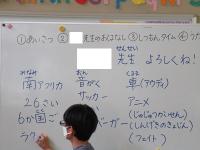 ①あいさつ ② 先生のおはなし ③しつもんタイム ④
せんせい
先生 よろしくね!
みなみ おん くるま
南アフリカ 音がく 車(アウディ)
26さい サッカー アニメ
6か国ご バーガー (じゅじゅつかいせん)
(しんげきのきょじん)
ラク (フェイト)